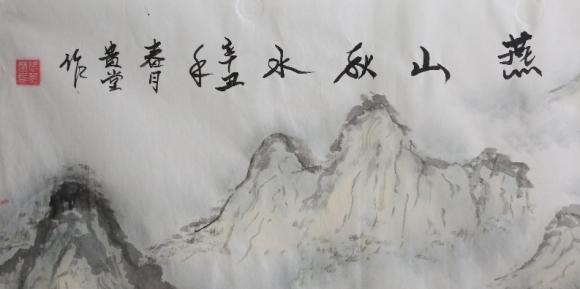 燕山秋水辛丑年春月贵堂作